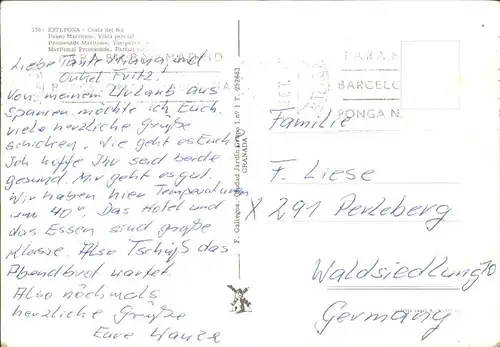 130 - ESTEPONA - Costa del Sol
Paseo Marítimo. Vista parcial
Promenade Maritime.
Maritimal Promenade. Partial
Liebe Tante und
Onkel Fritz!
Von meinem Urlaub aus
Spanien möchte ich Euch
viele herzliche Grüße
schicken. Wie geht es Euch?
Ich hoffe Ihr seid beide
gesund. Mir geht es gut.
Wir haben hier Temperaturen
um 40°. Das Hotel und
das Essen sind große
Klasse. Also Tschüß das
Abendbrot wartet.
Also nochmals
herzliche Grüße
Eure
F. Gallegos. Ciudad Jardín
GRANADA
PARA
BARCEL
PONGA N.
Familie
F. Liese
X 291 Perleberg
Waldsiedlung 70
Germany